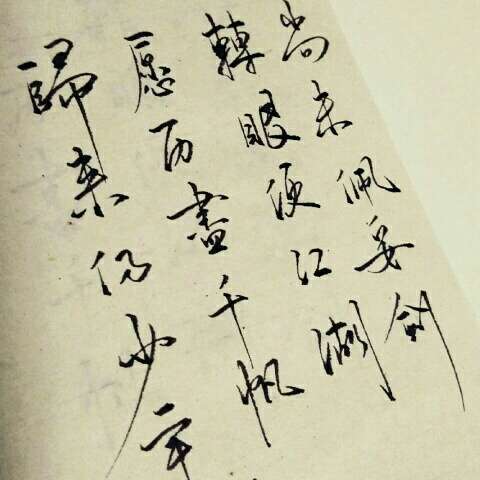 尚未佩妥剑
轉眼便江湖
愿历盡千帆
歸来仍少年